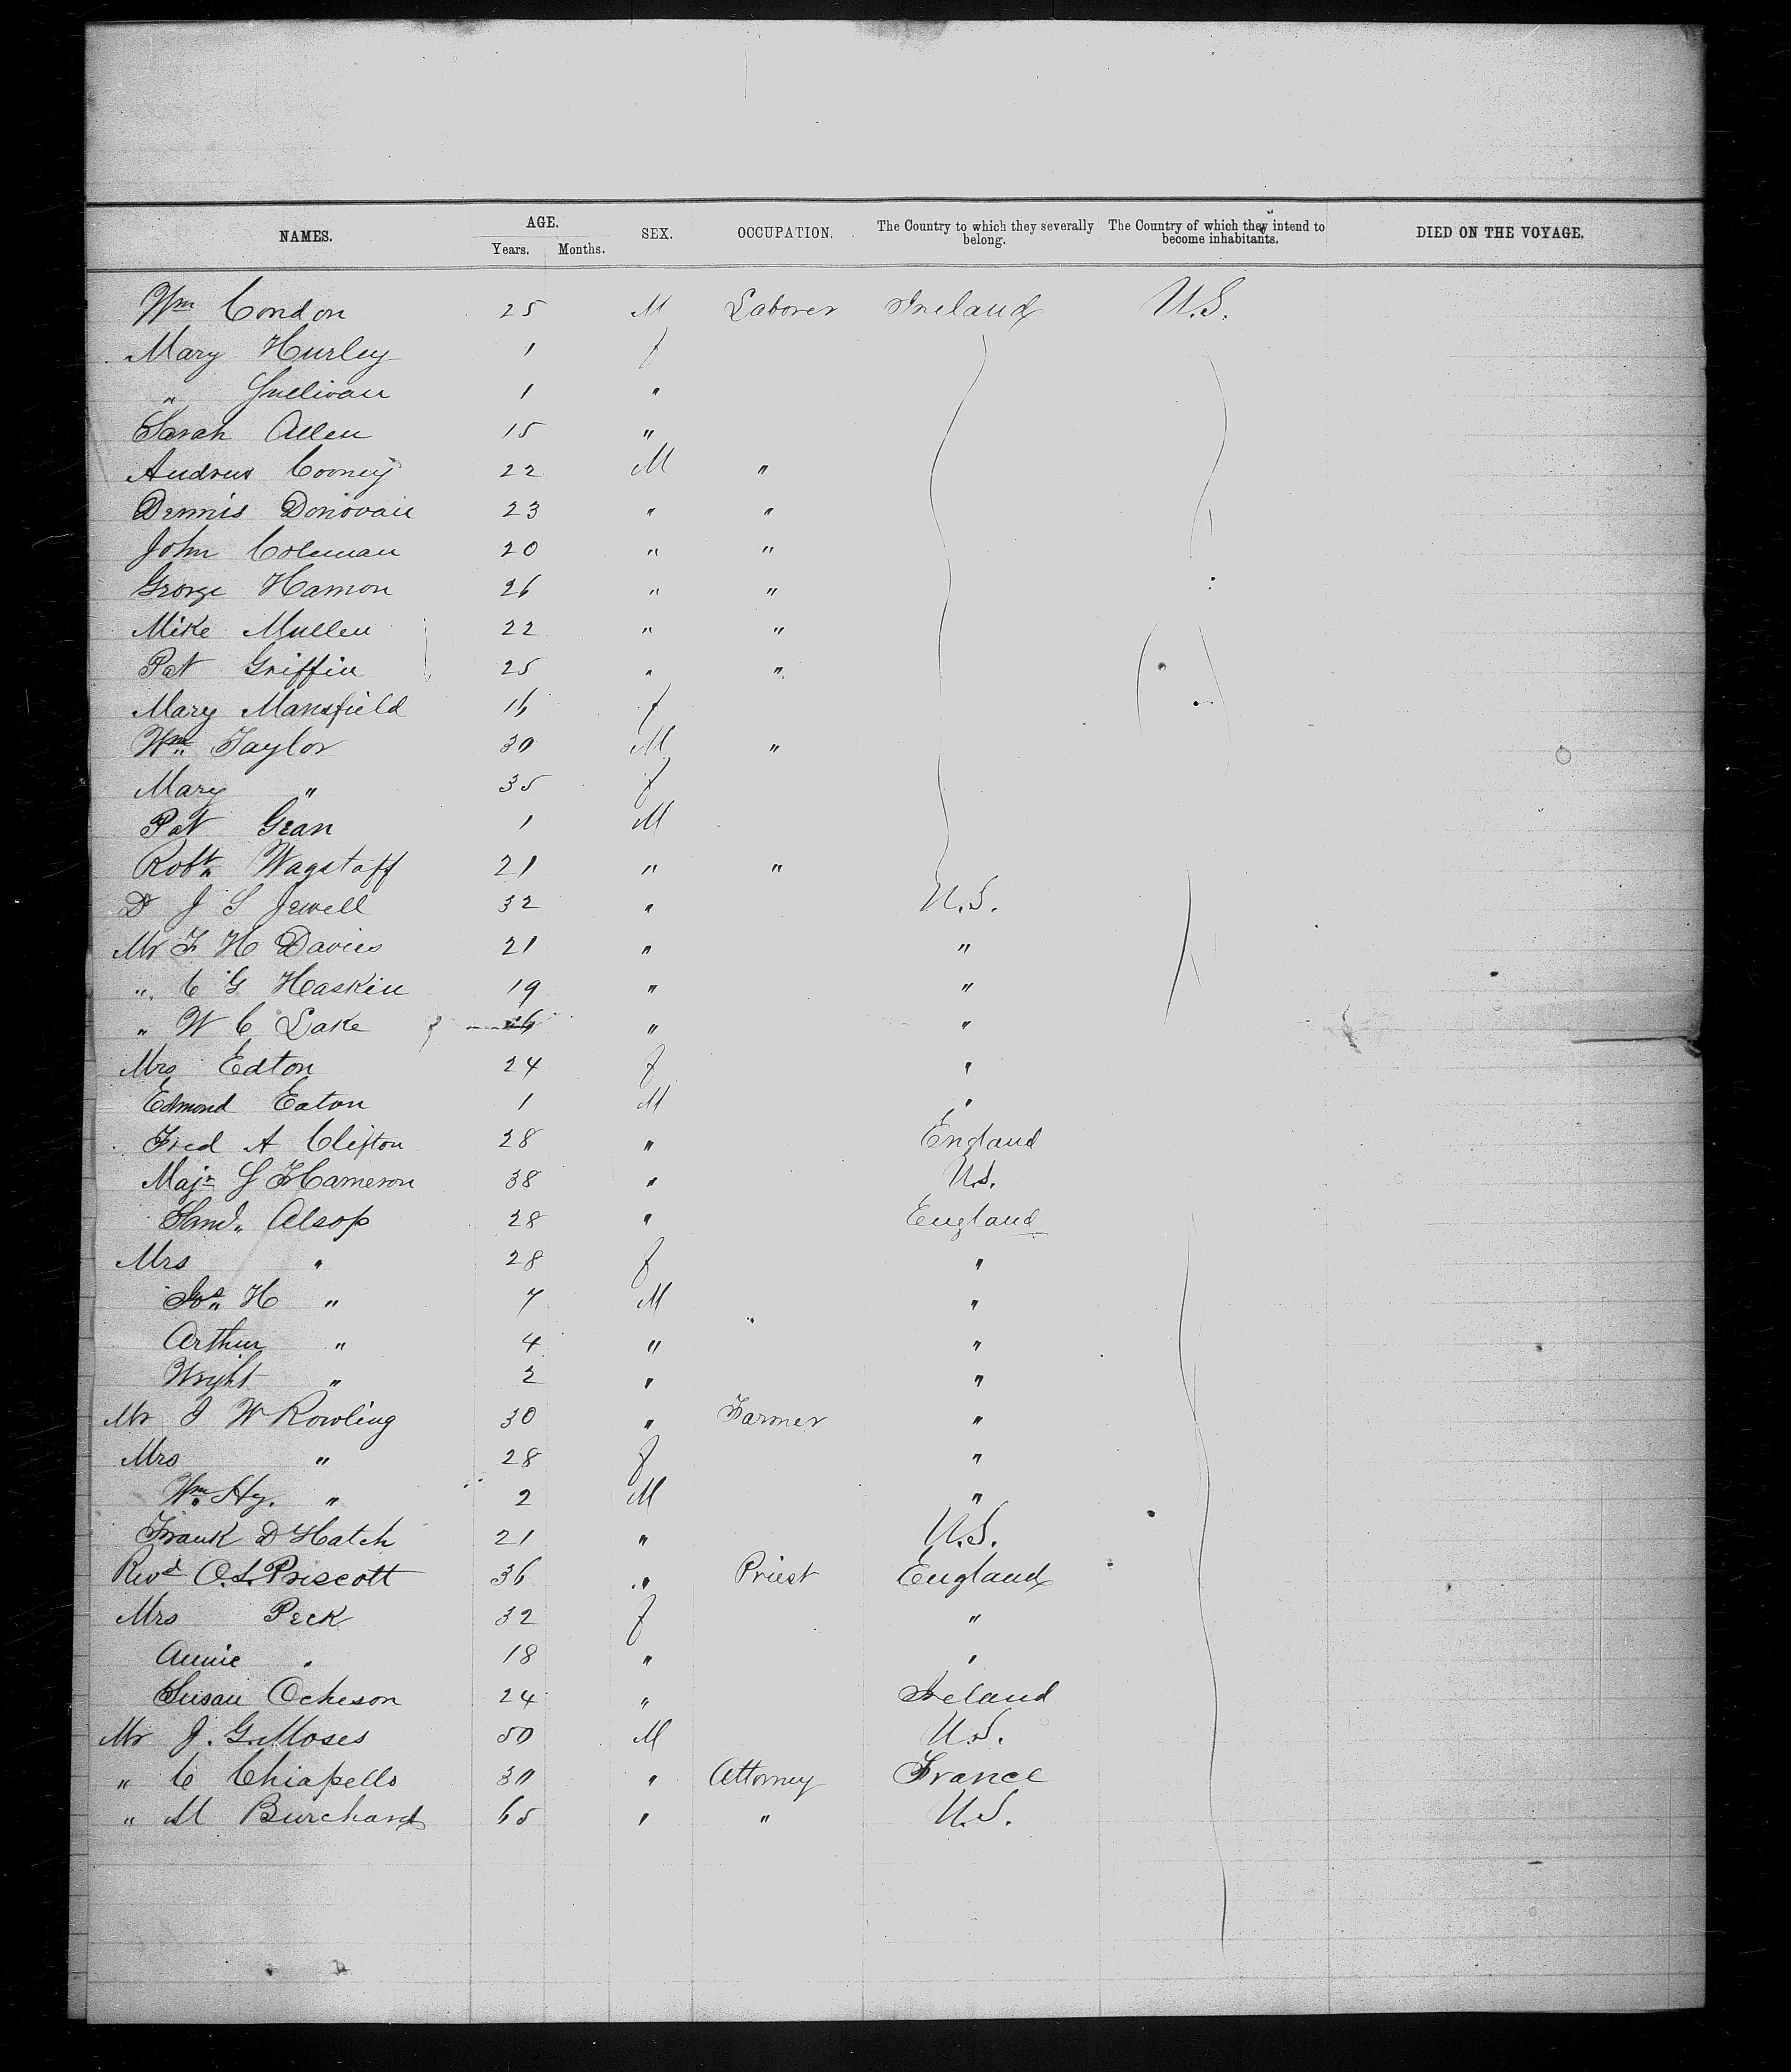 NAMES. AGE. SEX. OCCUPATION. The Country to which they severally belong. The Country of which they intend to become inhabitants. DIED ON THE VOYAGE.
Years. Months.
Wm Condon 25 M Laborer Ireland U.S.
Mary Hurley 1 f
" Sullivan 1 "
Sarah Allen 15 "
Andrew Cooney 22 M "
Dennis Donovan 23 " "
John Coleman 20 " "
George Hamon 26 " "
Mike Mullen 22 " "
Pat Griffin 25 " "
Mary Mansfield 16 f
Wm Taylor 30 M "
Mary " 35 f
Pat Gean 1 M
Robt Wagstaff 21 " "
Dr J S Jewell 32 " U.S.
Mr F H Davies 21 " "
" C G Haskin 19 " "
" W C Lake 26 " "
Mrs Edton 24 f "
Edmond Eaton 1 M "
Fred A Clifton 28 " England
Majr G F Hameron 38 " U.S.
Saml Alsop 28 " England
Mrs " 28 f "
Jos H " 7 M "
Arthur " 4 " "
Wright " 2 " "
Mr J W Rowling 30 " Farmer "
Mrs " 28 f "
Wm Hy. " 2 M "
Frank D Hatch 21 " U.S.
Revd O.S. Priscott 36 " Priest England
Mrs Peck 32 f "
Annie " 18 " "
Susan Ocheson 24 " Ireland
Mr J. G. Moses 50 M U.S.
" C Chiapells 30 " Attorney France
" M Burchard 65 " " U.S.